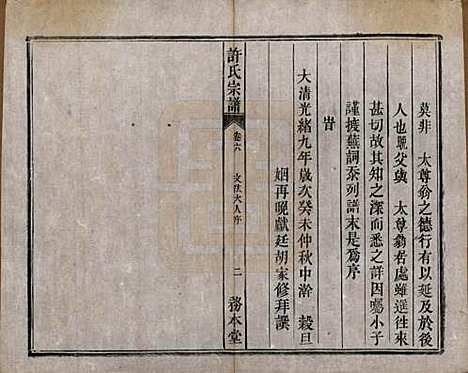 莫非　太尊翁之德行有以延及於後
人也鳳父與　太尊翁君處雖遥往來
甚切故其知之深而悉之詳因囑小子
謹摭蕪詞忝列譜末是爲序
旹
大清光緒九年歲次癸未仲秋中澣　穀旦
姻再晚獻廷胡家修拜撰
許氏宗譜
卷六
文法大人序
二
務本堂